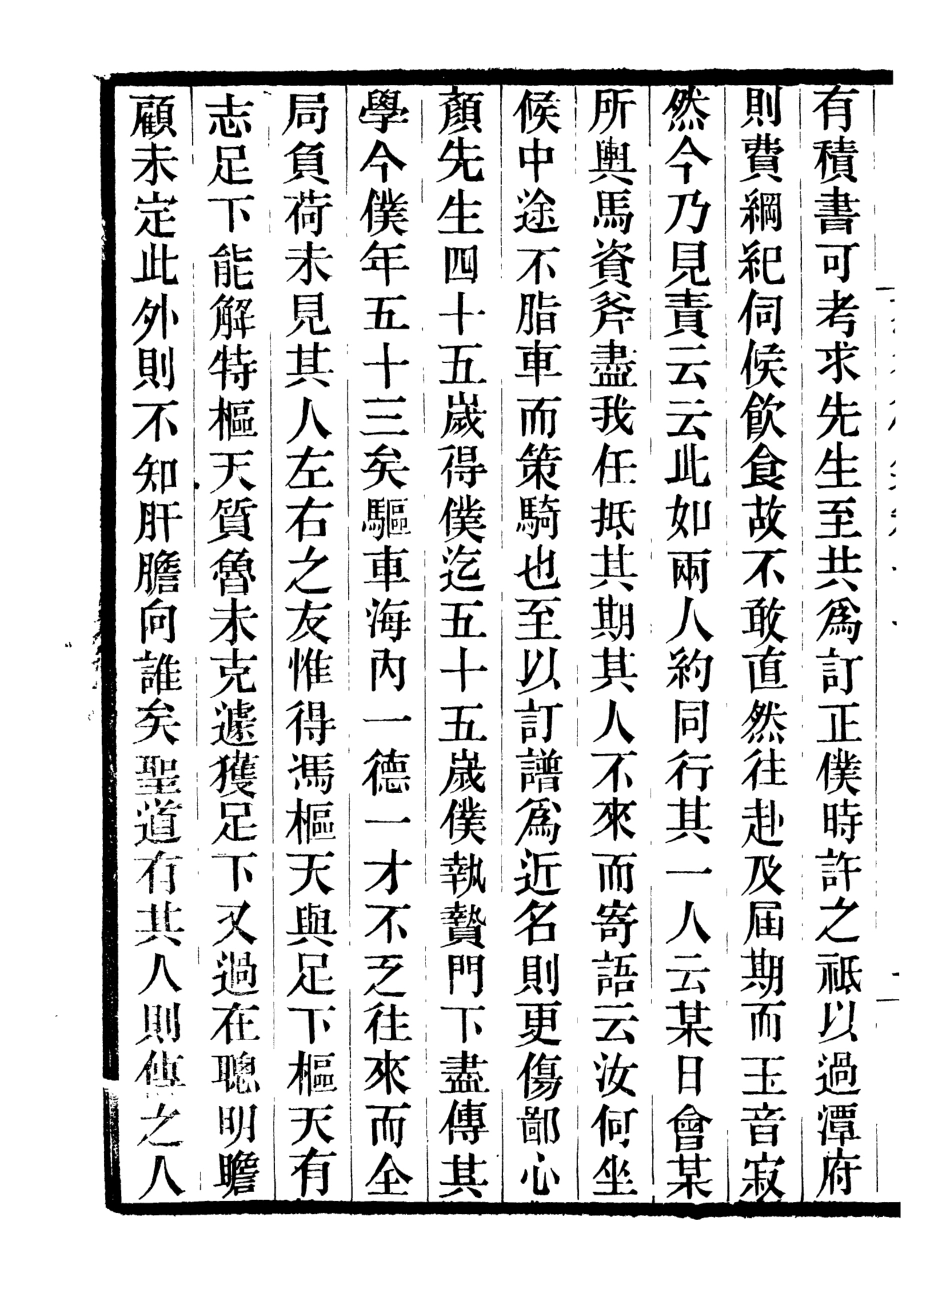 有積書可考求先生至共爲訂正僕時許之祇以過潭府
則費綱紀伺候飲食故不敢直然往赴及屆期而玉音寂
然今乃見責云云此如兩人約同行其一人云某日會某
所輿馬資斧盡我任抵其期其人不來而寄語云汝何坐
候中途不脂車而策騎也至以訂譜爲近名則更傷鄙心
顏先生四十五歲得僕迄五十五歲僕執贄門下盡傳其
學今僕年五十三矣驅車海內一德一才不乏往來而全
局負荷未見其人左右之友惟得馮樞天與足下樞天有
志足下能解特樞天質魯未克遽獲足下又過在聰明瞻
顧未定此外則不知肝膽向誰矣聖道有其人則傳之人